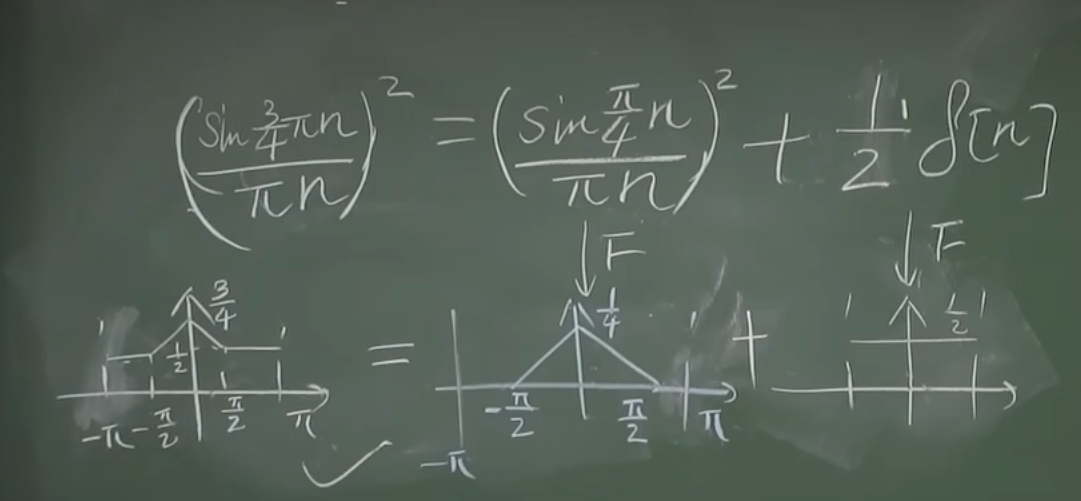 (sin 3/4 πn / πn)² = (sin π/4 n / πn)² + 1/2 δ[n]
↓ F ↓ F
3/4 1/4 1/2
1/2 = +
-π -π/2 π/2 π -π -π/2 π/2 π
✓